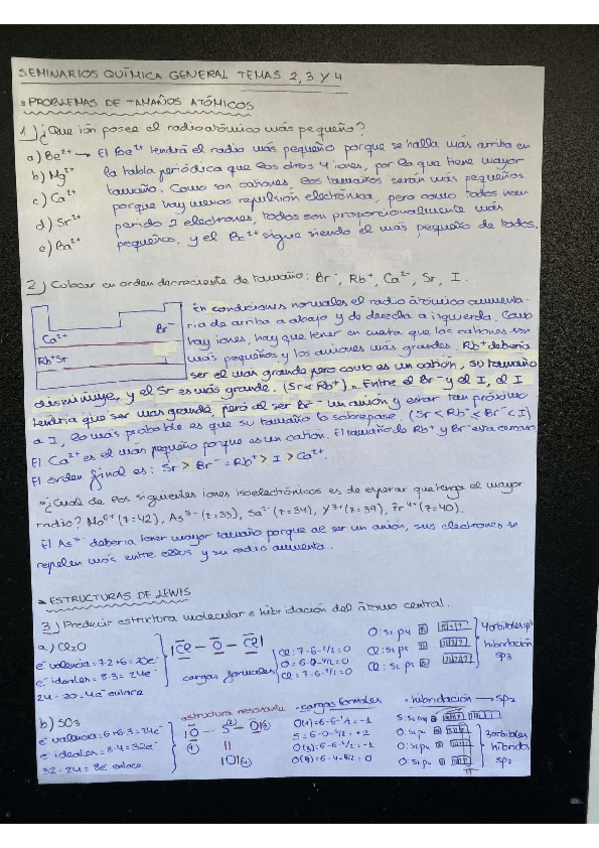 SEMINARIOS QUÍMICA GENERAL TEMAS 2, 3 Y 4
PROBLEMAS DE TAMAÑOS ATÓMICOS
1) ¿Que ión posee el radio atómico más pequeño?
a) Be²⁺ → El Be²⁺ tendrá el radio más pequeño porque se halla más arriba en
b) Mg²⁺ la tabla periódica que los otros 4 iones, por lo que tiene mayor
c) Ca²⁺ tamaño. Como son cationes, los tamaños serán más pequeños
porque hay menos repulsión electrónica, pero como todos han
d) Sr²⁺ perdido 2 electrones, todos son proporcionalmente más
e) Ba²⁺ pequeños, y el Be²⁺ sigue siendo el más pequeño de todos.
2) Colocar en orden decreciente de tamaño: Br⁻, Rb⁺, Ca²⁺, Sr, I.
En condiciones normales el radio átomico aumenta-
ria de arriba a abajo y de derecha a izquierda. Como
Ca²⁺ Br⁻ hay iones, hay que tener en cuenta que los cationes son
Rb⁺Sr I más pequeños y los aniones más grandes. Rb⁺ debería
ser el mas grande pero como es un catión, su tamaño
disminuye, y el Sr es más grande. (Sr < Rb⁺). Entre el Br⁻ y el I, el I
tendría que ser mas grande, pero al ser Br⁻ un anión y estar tan próximo
a I, lo más probable es que su tamaño lo sobrepase. (Sr < Rb⁺ < Br⁻ < I)
El Ca²⁺ es el más pequeño porque es un catión. El tamaño de Rb⁺ y Br⁻
El orden final es: Sr > Br⁻ = Rb⁺ > I > Ca²⁺.
¿Cual de los siguientes iones isoelectrónicos es de esperar que tenga el mayor
radio? Mo⁶⁺ (z=42), As³⁻ (z=33), Se²⁻ (z=34), Y³⁺ (z=39), Zr⁴⁺ (z=40).
El As³⁻ debería tener mayor tamaño porque al ser un anión, sus electrones se
repelen más entre ellos y su radio aumenta.
ESTRUCTURAS DE LEWIS
3) Predecir estructura molecular e hibridación del átomo central.
a) Cl₂O
e⁻ valencia = 7·2+6 = 20e⁻
e⁻ ideales = 8·3 = 24e⁻
24 - 20 = 4e⁻ enlace
|Cl - O - Cl|
cargas formales
Cl: 7-6-1/2 = 0
Cl = 7-6-1/2 = 0
4 orbitales sp³
hibridación
sp3
b) SO₃
e⁻ valencia = 6+6·3 = 24e⁻
e⁻ ideales = 8·4 = 32e⁻
32 - 24 = 8e⁻ enlace
estructura resonante
cargas formales
O(1) = 6-6-1/2 = -1
S = 6-0-8/2 = +2
O(3) = 6-6-1/2 = -1
O(4) = 6-4-4/2 = 0
hibridación → sp₂
3 orbitales
híbridos
sp₂